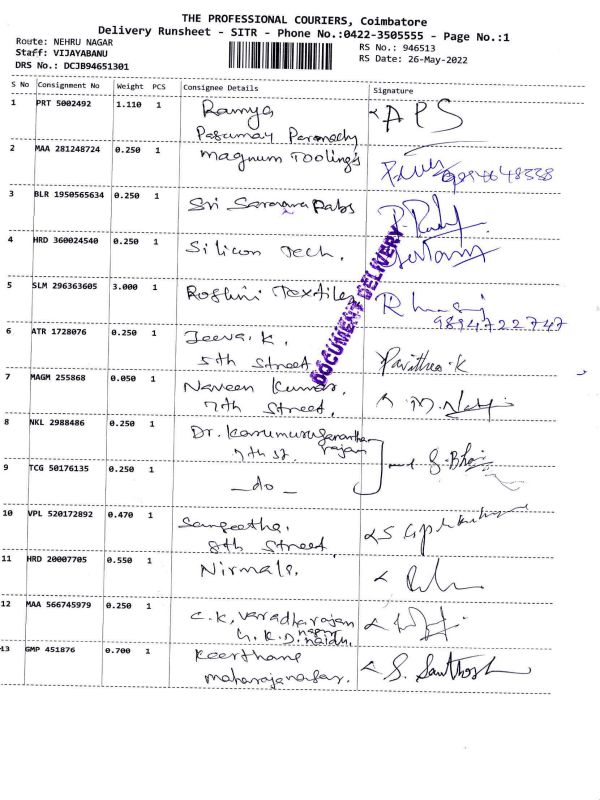 THE PROFESSIONAL COURIERS, Coimbatore
Delivery Runsheet - SITR - Phone No.:0422-3505555 - Page No.:1
Route: NEHRU NAGAR
Staff: VIJAYABANU
DRS No.: DCJB94651301
RS No.: 946513
RS Date: 26-May-2022
S No Consignment No Weight PCS Consignee Details Signature
1 PRT 5002492 1.110 1 Ramya APS
2 MAA 281248724 0.250 1 Magnum Toolings
3 BLR 1950565634 0.250 1 Sri Saravana Fabs
4 HRD 360024540 0.250 1 Silicon Tech.
5 SLM 296363605 3.000 1 Roshini Textiles
9894722747
DOCUMENT DELIVERY
6 ATR 1728076 0.250 1 Jeeva.K.
5th Street Pavithra.K
7 MAGM 255868 0.050 1 Naveen Kumar.
7th Street.
8 NKL 2988486 0.250 1 Dr.
7th st.
9 TCG 50176135 0.250 1 -do-
10 VPL 520172892 0.470 1 Sangeetha.
8th Street
11 HRD 20007705 0.550 1 Nirmala.
12 MAA 566745979 0.250 1 C.K. Varadharajan
G.K.D. nagar
13 GMP 451876 0.700 1 Keerthana S. Santhosh
maharajanagar.